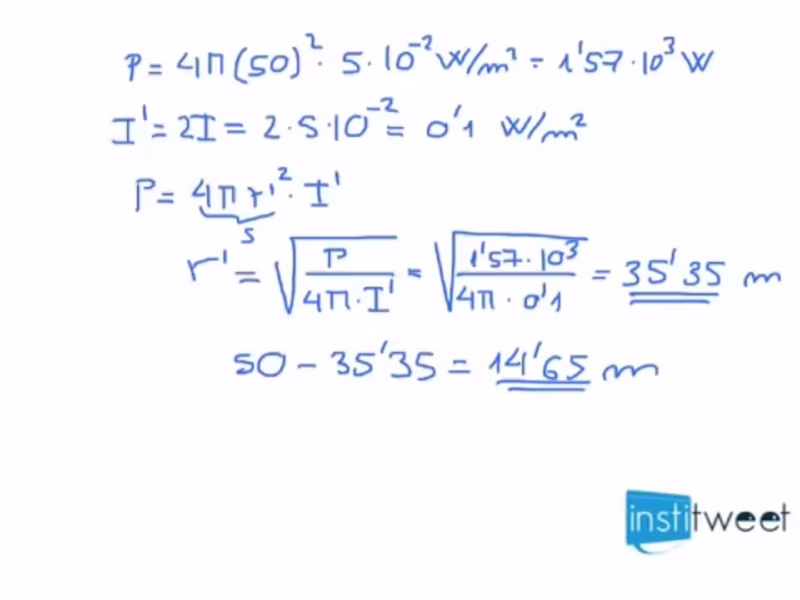 P = 4π(50)² · 5·10⁻² W/m² = 1'57·10³ W
I' = 2I = 2·5·10⁻² = 0'1 W/m²
P = 4πr'² · I'
S
r' = √(P / 4π·I') = √(1'57·10³ / 4π·0'1) = 35'35 m
50 - 35'35 = 14'65 m
institweet